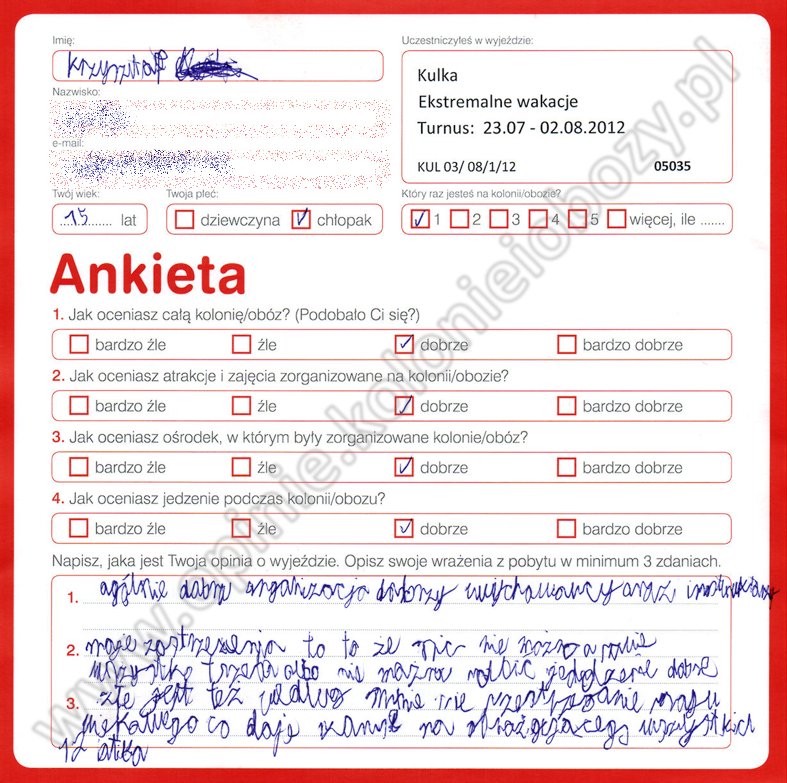 Imię:
Krzysztof
Nazwisko:
e-mail:
Twój wiek:
15 lat
Twoja płeć:
dziewczyna chłopak
Uczestniczyłeś w wyjeździe:
Kulka
Ekstremalne wakacje
Turnus: 23.07 - 02.08.2012
KUL 03/ 08/1/12 05035
Który raz jesteś na kolonii/obozie?
1 2 3 4 5 więcej, ile .......
Ankieta
1. Jak oceniasz całą kolonię/obóz? (Podobało Ci się?)
bardzo źle źle dobrze bardzo dobrze
2. Jak oceniasz atrakcje i zajęcia zorganizowane na kolonii/obozie?
bardzo źle źle dobrze bardzo dobrze
3. Jak oceniasz ośrodek, w którym były zorganizowane kolonie/obóz?
bardzo źle źle dobrze bardzo dobrze
4. Jak oceniasz jedzenie podczas kolonii/obozu?
bardzo źle źle dobrze bardzo dobrze
Napisz, jaka jest Twoja opinia o wyjeździe. Opisz swoje wrażenia z pobytu w minimum 3 zdaniach.
1. ogólnie dobra organizacja dobrzy wychowawcy oraz
2. moje to to że nic nie można
wszystko trzeba albo nie można dobre
3. złe jest też według mnie nie
co daje na wszystkich
12 latka
www.opinie.kolonieiobozy.pl